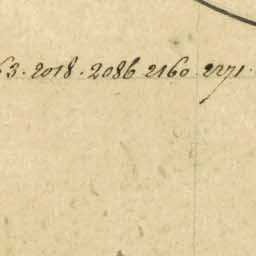 63. 2018. 2086 2160 2271.